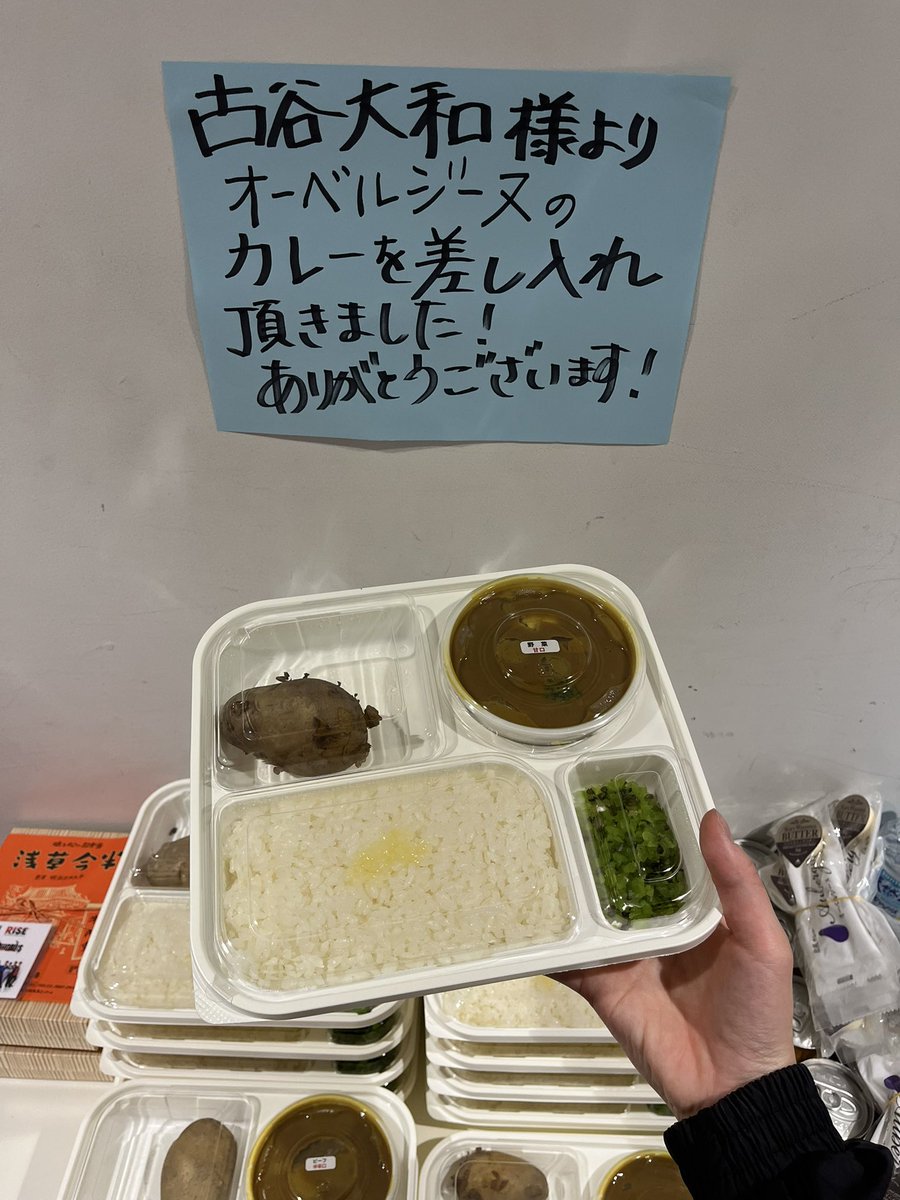 古谷大和様より
オーベルジーヌの
カレーを差し入れ
頂きました!
ありがとうございます!
野菜
甘口
浅草今半
RISE
BUTTER
BUTTER
ビーフ
中辛口